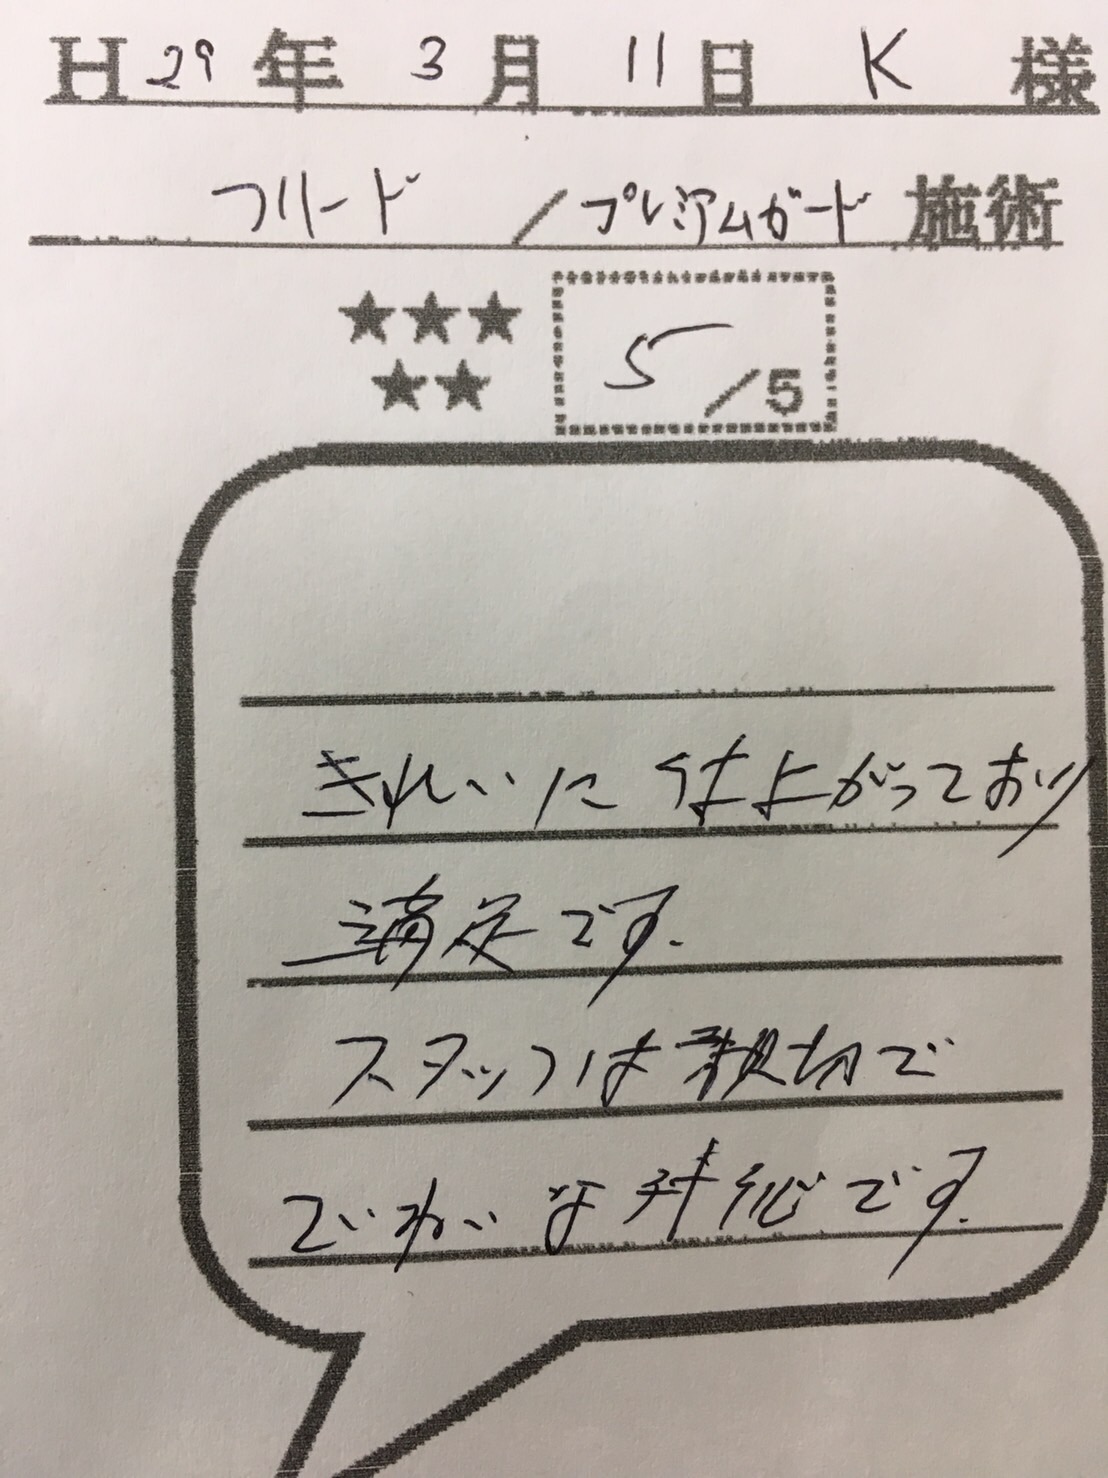 H29年 3月 11日 K 様
フリード / プレミアムガード 施術
★★★
★★
5/5
きれいに仕上がっており
満足です.
スタッフは親切で
でいねいな対応です.